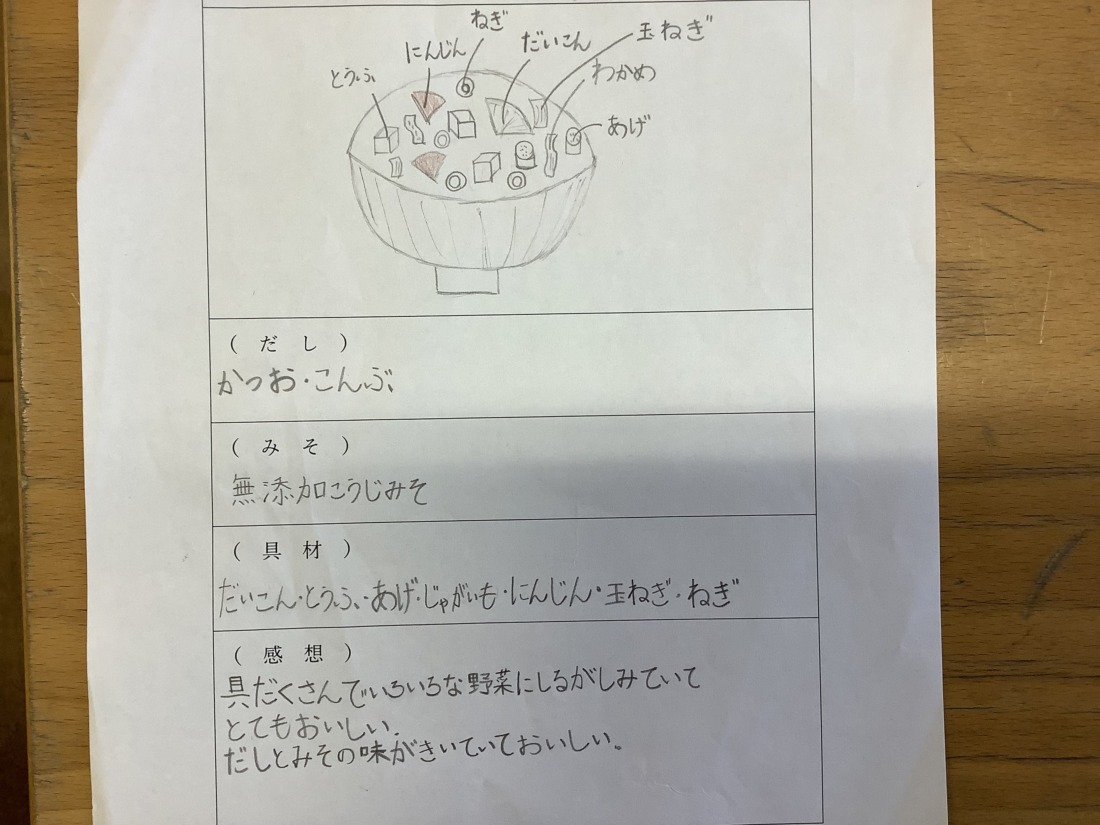 ねぎ
にんじん
だいこん
玉ねぎ
とうふ
わかめ
あげ
( だ し )
かつお・こんぶ
( み そ )
無添加こうじみそ
( 具 材 )
だいこん・とうふ・あげ・じゃがいも・にんじん・玉ねぎ・ねぎ
( 感 想 )
具だくさんでいろいろな野菜にしるがしみていて
とてもおいしい。
だしとみその味がきいていておいしい。